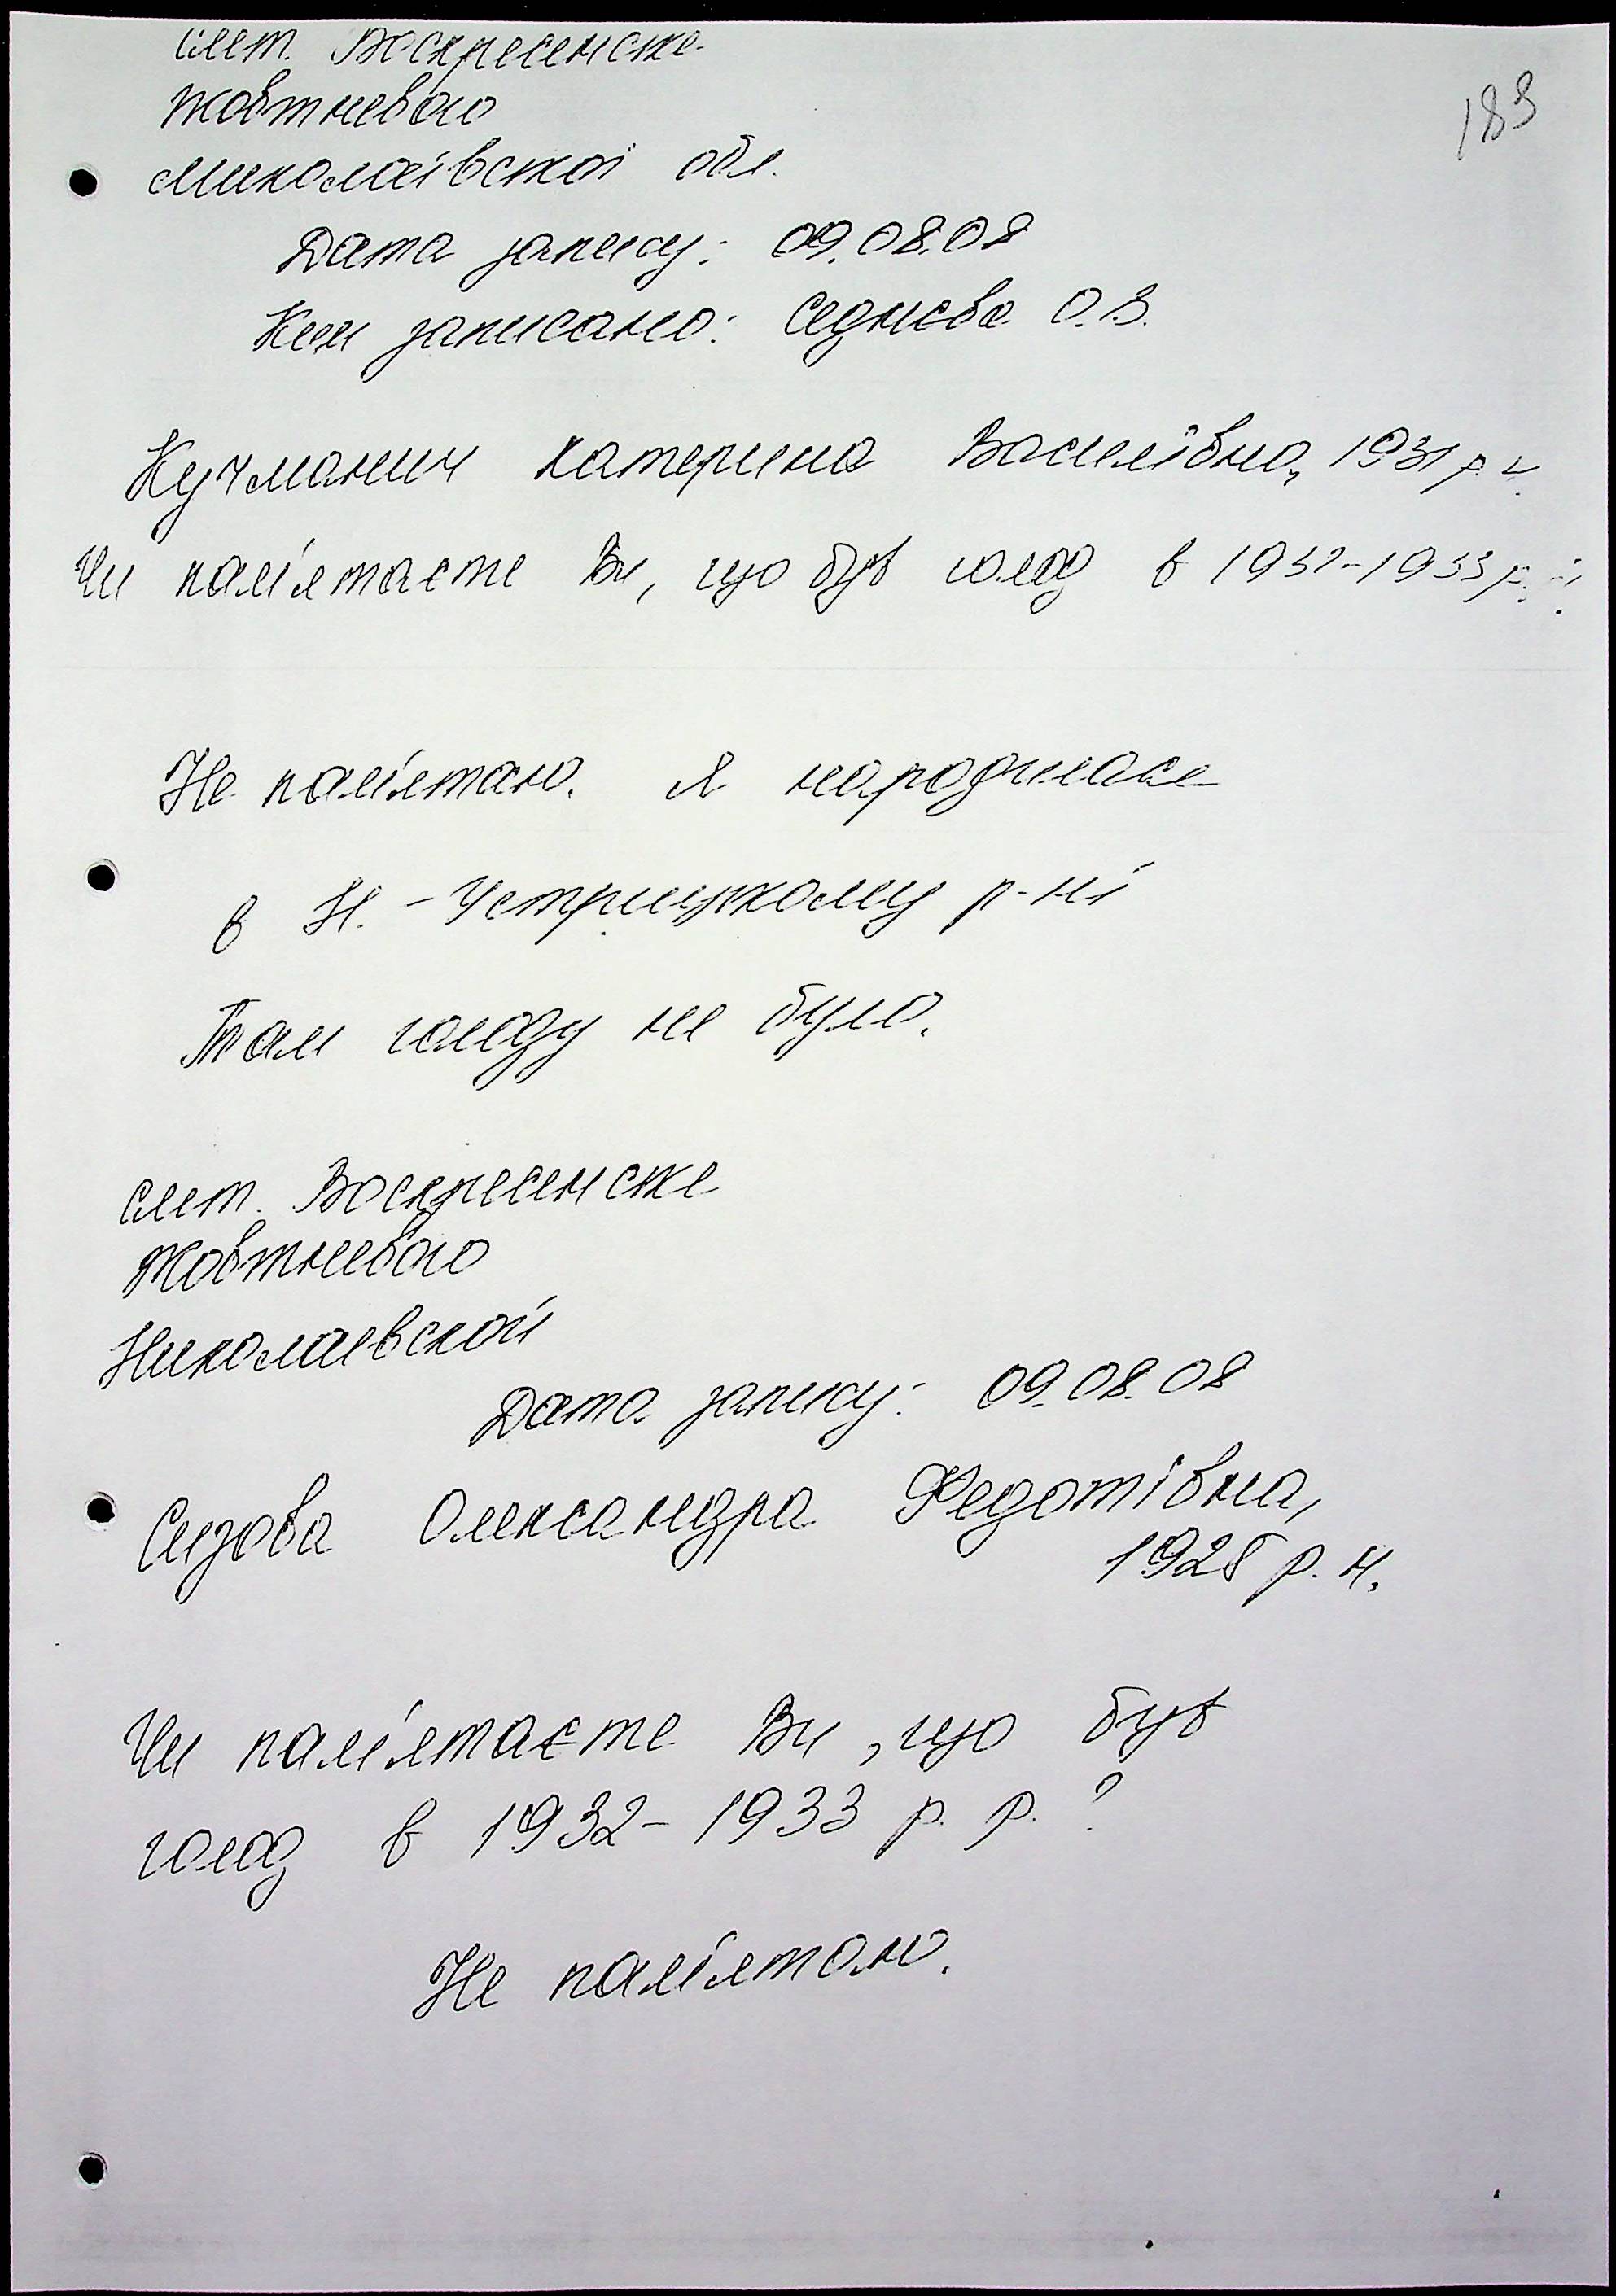 183
смт. Воскресенське
Жовтневого
Миколаївської обл.
Дата запису: 09.08.08
Ким записано: Седнєва О.В.
Кучманич Катерина Василівна, 1931 р.н.
Чи пам'ятаєте Ви, що був голод в 1932-1933 р.?
Не пам'ятаю. Я народилась
в Н.-Устрицькому р-ні
Там голоду не було.
смт. Воскресенське
Жовтневого
Николаевской
Дата запису: 09.08.08
Сизова Олександра Федотівна,
1928 р.н.
Чи пам'ятаєте Ви, що був
голод в 1932-1933 р.р.?
Не пам'ятаю.